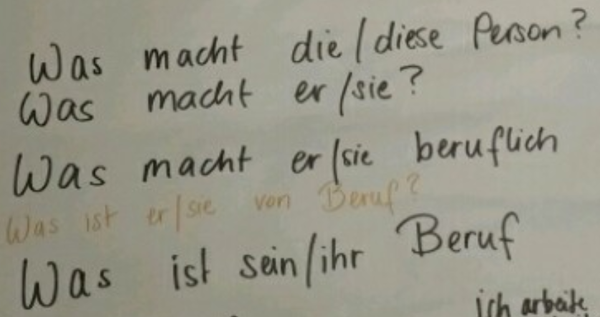 Was macht die/diese Person?
Was macht er/sie?
Was macht er/sie beruflich
Was ist er/sie von Beruf?
Was ist sein/ihr Beruf
ich arbeite